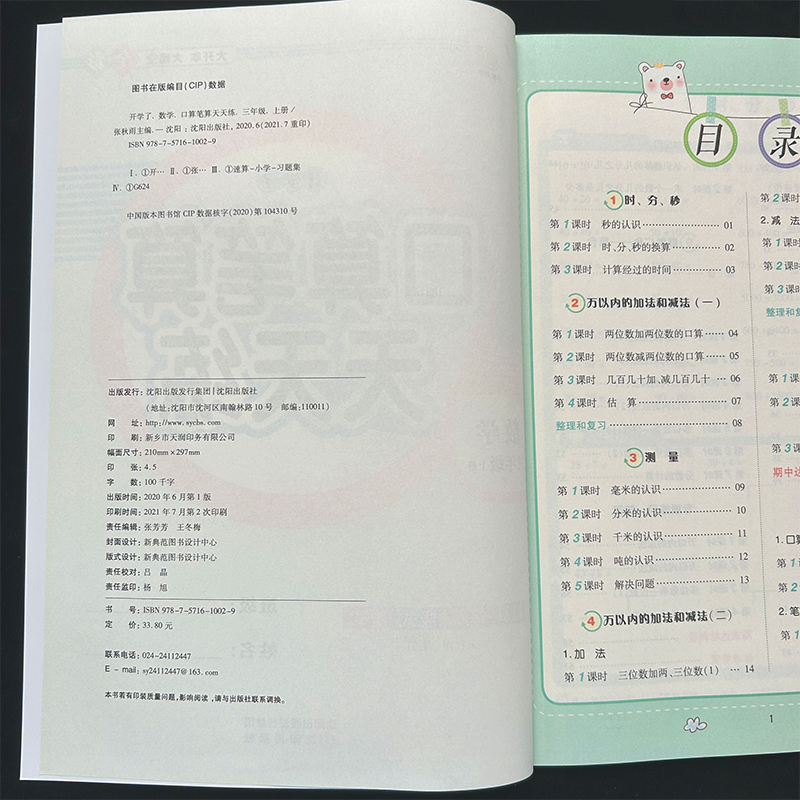 图书在版编目(CIP)数据
开学了. 数学. 口算笔算天天练. 三年级. 上册 /
张秋雨主编. — 沈阳 : 沈阳出版社, 2020.6(2021.7重印)
ISBN 978-7-5716-1002-9
Ⅰ.①开… Ⅱ.①张… Ⅲ.①速算-小学-习题集
Ⅳ.①G624
中国版本图书馆CIP数据核字(2020)第104310号
出版发行: 沈阳出版发行集团|沈阳出版社
(地址:沈阳市沈河区南翰林路10号 邮编:110011)
网 址: http://www.sycbs.com
印 刷: 新乡市天润印务有限公司
幅面尺寸: 210mm×297mm
印 张: 4.5
字 数: 100千字
出版时间: 2020年6月第1版
印刷时间: 2021年7月第2次印刷
责任编辑: 张芳芳 王冬梅
封面设计: 新典范图书设计中心
版式设计: 新典范图书设计中心
责任校对: 吕 晶
责任监印: 杨 旭
书 号: ISBN 978-7-5716-1002-9
定 价: 33.80元
联系电话: 024-24112447
E-mail: sy24112447@163.com
本书若有印装质量问题,影响阅读,请与出版社联系调换。
目录
1 时、分、秒
第1课时 秒的认识 …… 01
第2课时 时、分、秒的换算 …… 02
第3课时 计算经过的时间 …… 03
2 万以内的加法和减法(一)
第1课时 两位数加两位数的口算 …… 04
第2课时 两位数减两位数的口算 …… 05
第3课时 几百几十加、减几百几十 … 06
第4课时 估 算 …… 07
整理和复习 …… 08
3 测 量
第1课时 毫米的认识 …… 09
第2课时 分米的认识 …… 10
第3课时 千米的认识 …… 11
第4课时 吨的认识 …… 12
第5课时 解决问题 …… 13
4 万以内的加法和减法(二)
1.加 法
第1课时 三位数加两、三位数(1) … 14
第2课时
2.减 法
第1课时
第2课时
第3课时
整理和复
第1课
第2课
第3课
期中达
1.口算
第1
第2
2.笔
第1
1